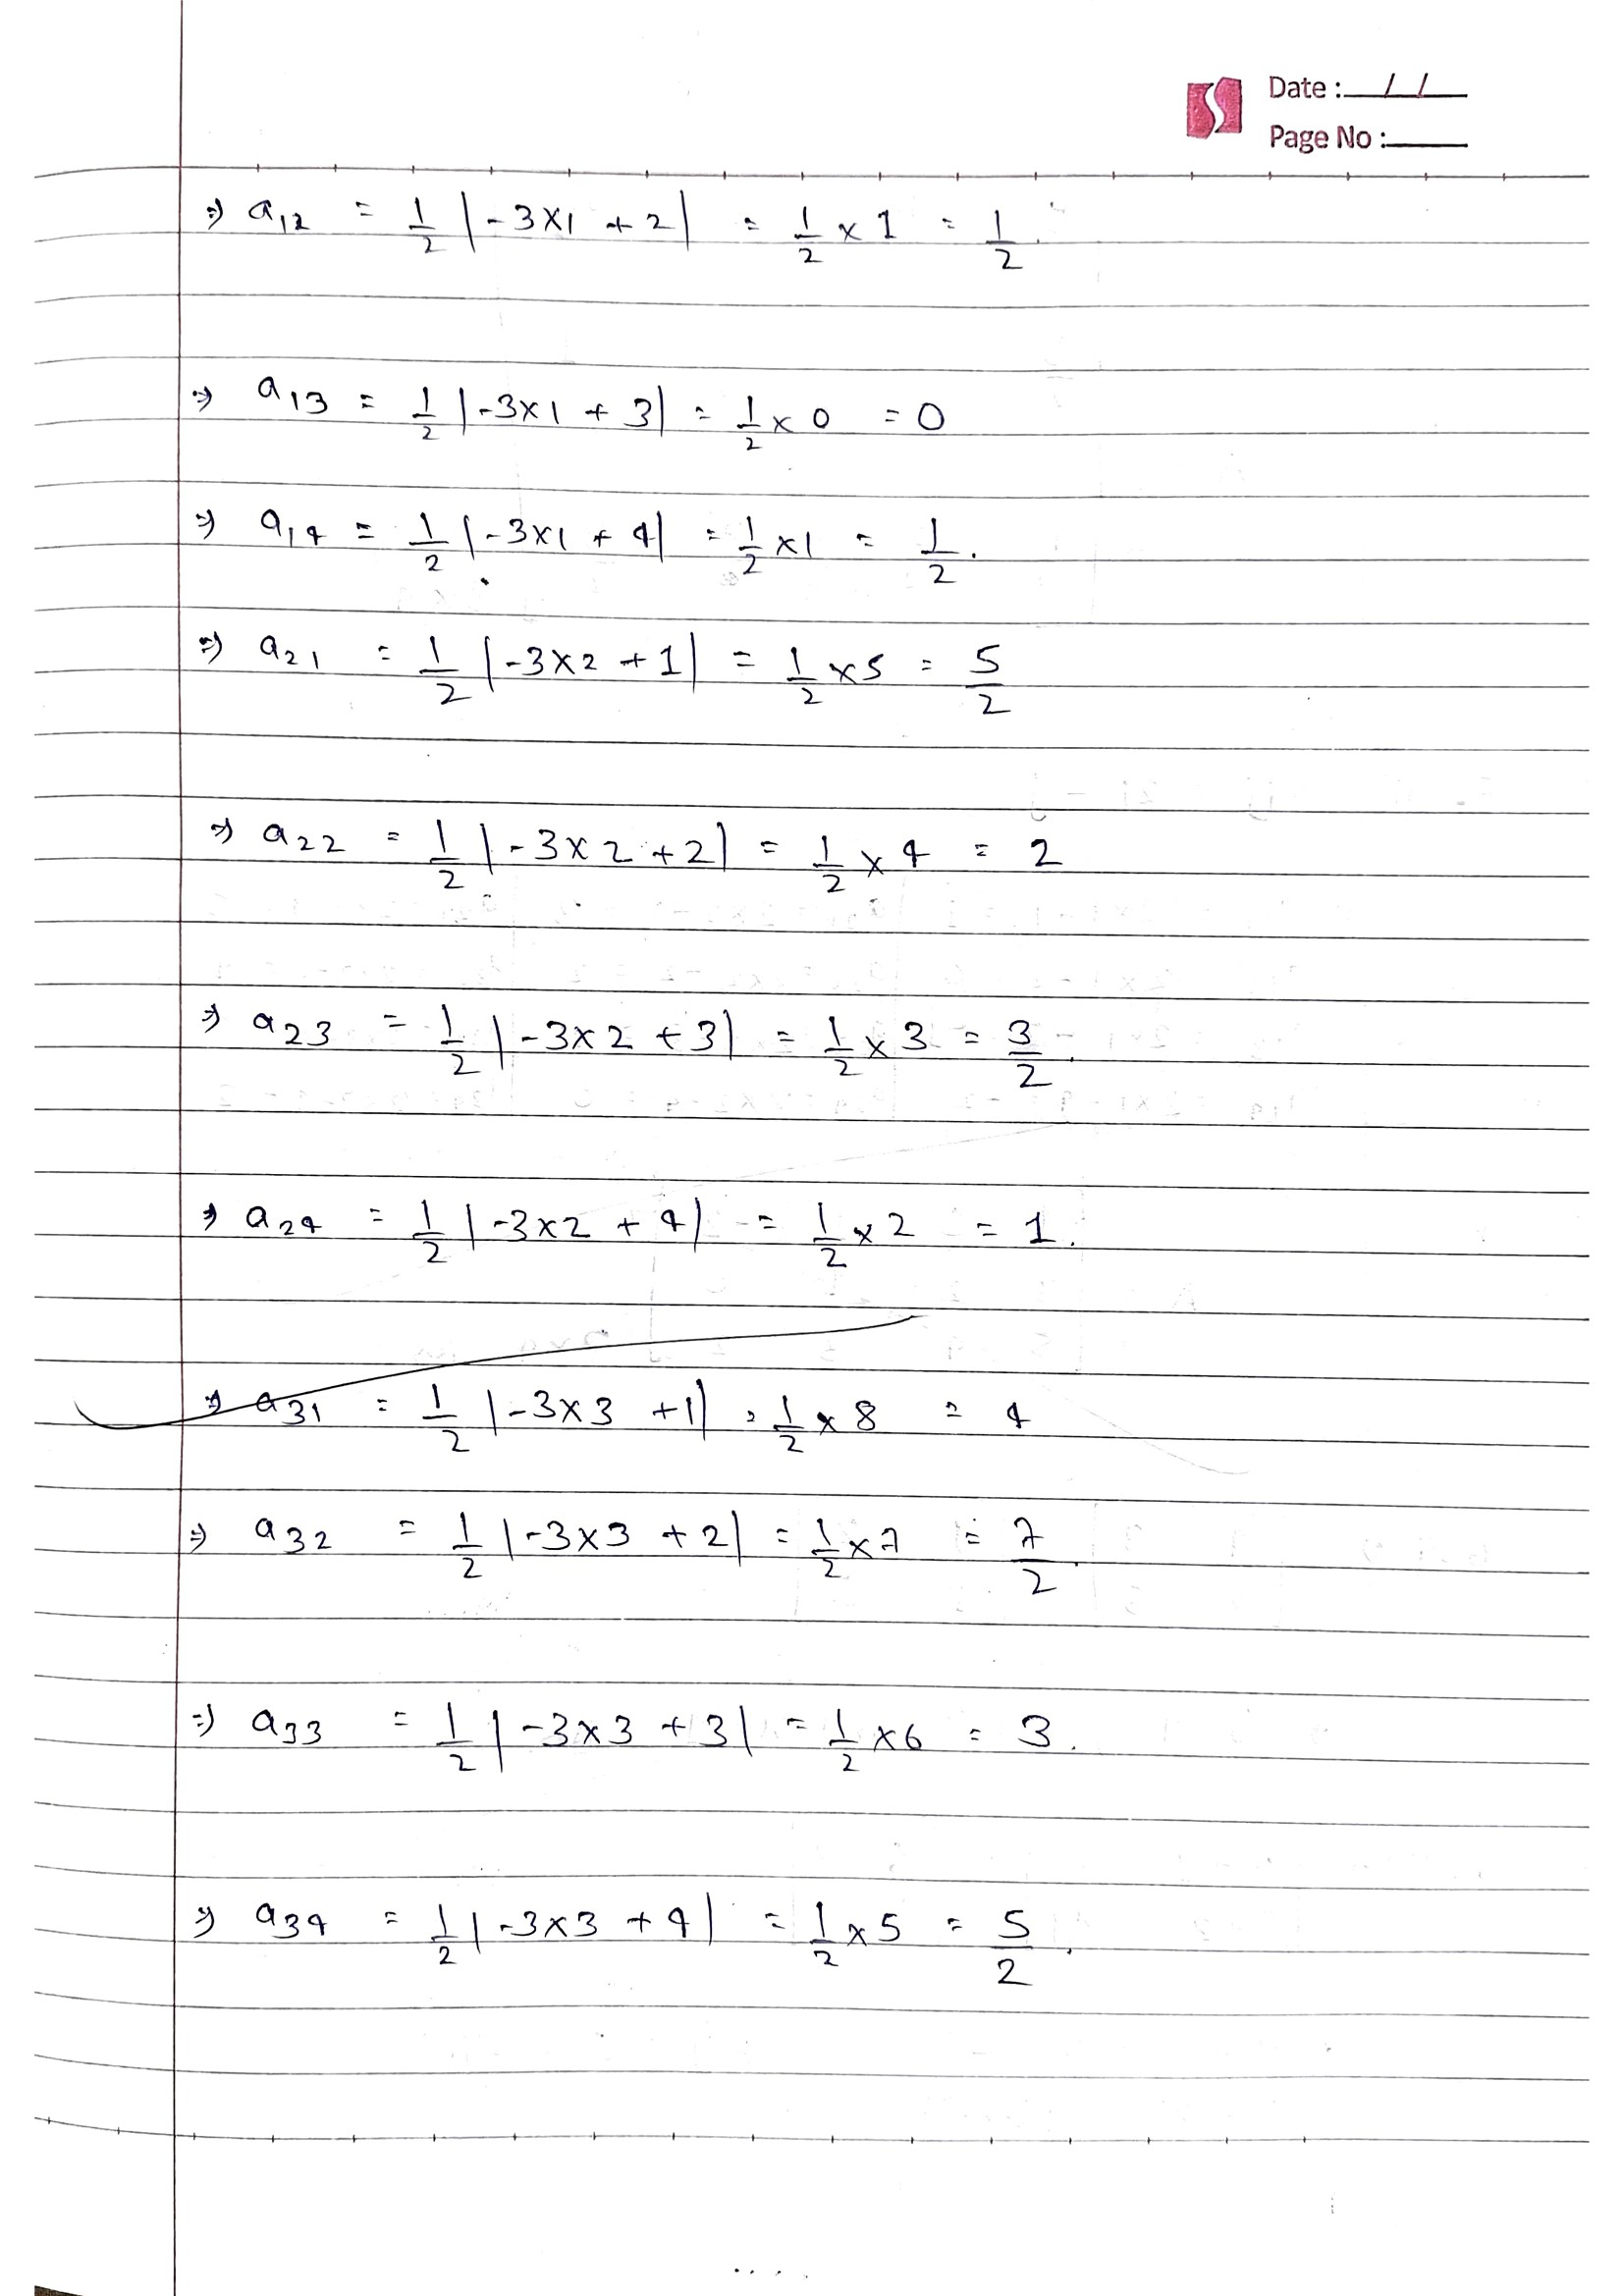 Date : / /
Page No :
⇒ a₁₂ = 1/2 |-3×1 + 2| = 1/2 × 1 = 1/2.
⇒ a₁₃ = 1/2 |-3×1 + 3| = 1/2 × 0 = 0
⇒ a₁₄ = 1/2 |-3×1 + 4| = 1/2 ×1 = 1/2.
⇒ a₂₁ = 1/2 |-3×2 + 1| = 1/2 ×5 = 5/2
⇒ a₂₂ = 1/2 |-3×2 + 2| = 1/2 × 4 = 2
⇒ a₂₃ = 1/2 |-3×2 + 3| = 1/2 × 3 = 3/2.
⇒ a₂₄ = 1/2 |-3×2 + 4| = 1/2 × 2 = 1.
⇒ a₃₁ = 1/2 |-3×3 + 1| = 1/2 × 8 = 4
⇒ a₃₂ = 1/2 |-3×3 + 2| = 1/2 ×7 = 7/2.
⇒ a₃₃ = 1/2 |-3×3 + 3| = 1/2 ×6 = 3.
⇒ a₃₄ = 1/2 |-3×3 + 4| = 1/2 × 5 = 5/2.